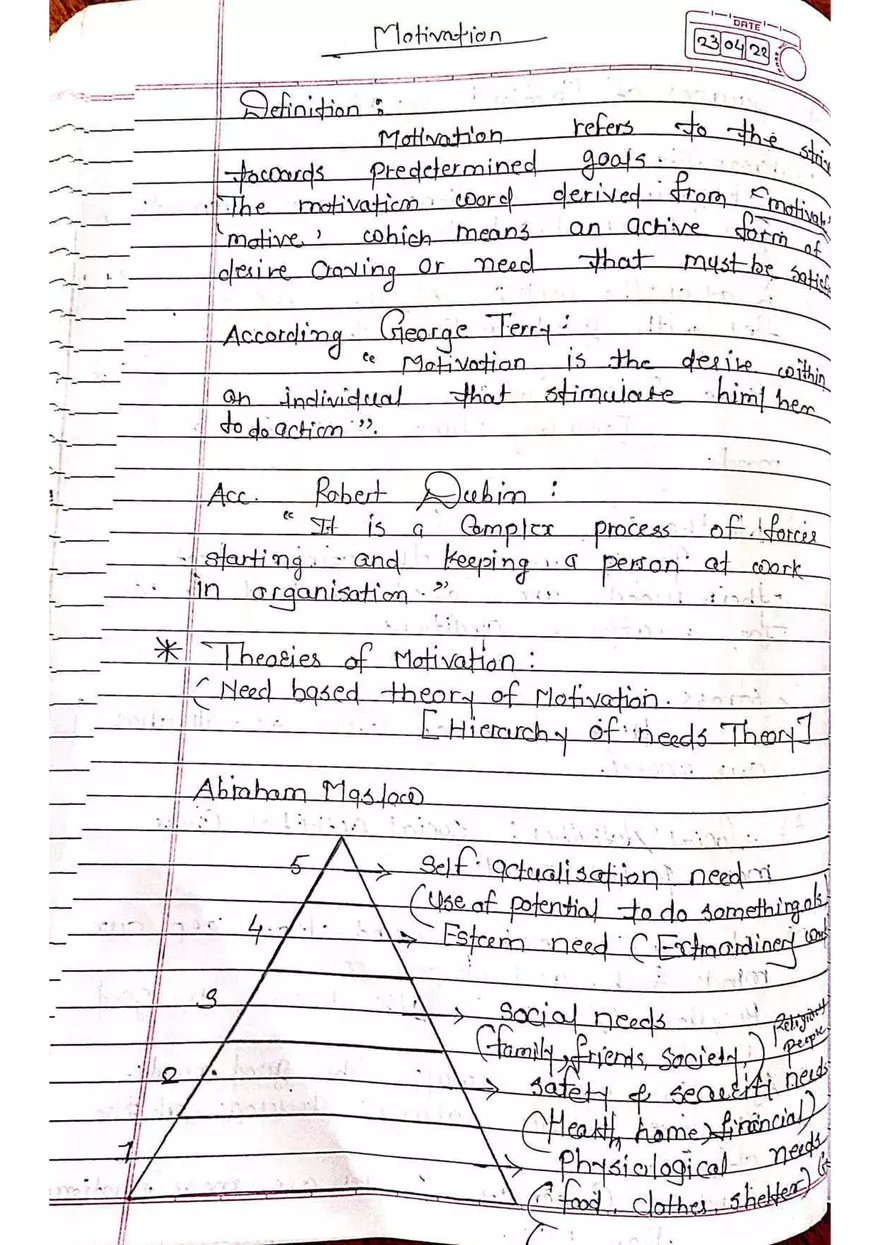 Motivation
DATE
23 04 22
Definition :
Motivation refers to the
towards predetermined goals.
The motivation word derived from
'motive' which means an active form of
desire craving or need that must be
According George Terry :
" Motivation is the desire within
an individual that stimulate him/her
to do action ".
Acc. Robert Dubin :
" It is a Complex process of forces
starting and keeping a person at work
in organisation. "
* Theories of Motivation :
( Need based theory of Motivation.
[ Hierarchy of needs Theory ]
Abraham Maslow
5 → Self actualisation need
(Use of potential to do something
4 → Esteem need (Extraordinery
3 → Social needs
(family, friends, society,) Religiast people
2 → Safety & securiti needs
(Health, home, financial)
1 → Physiological needs
(food, clothes, shelter)